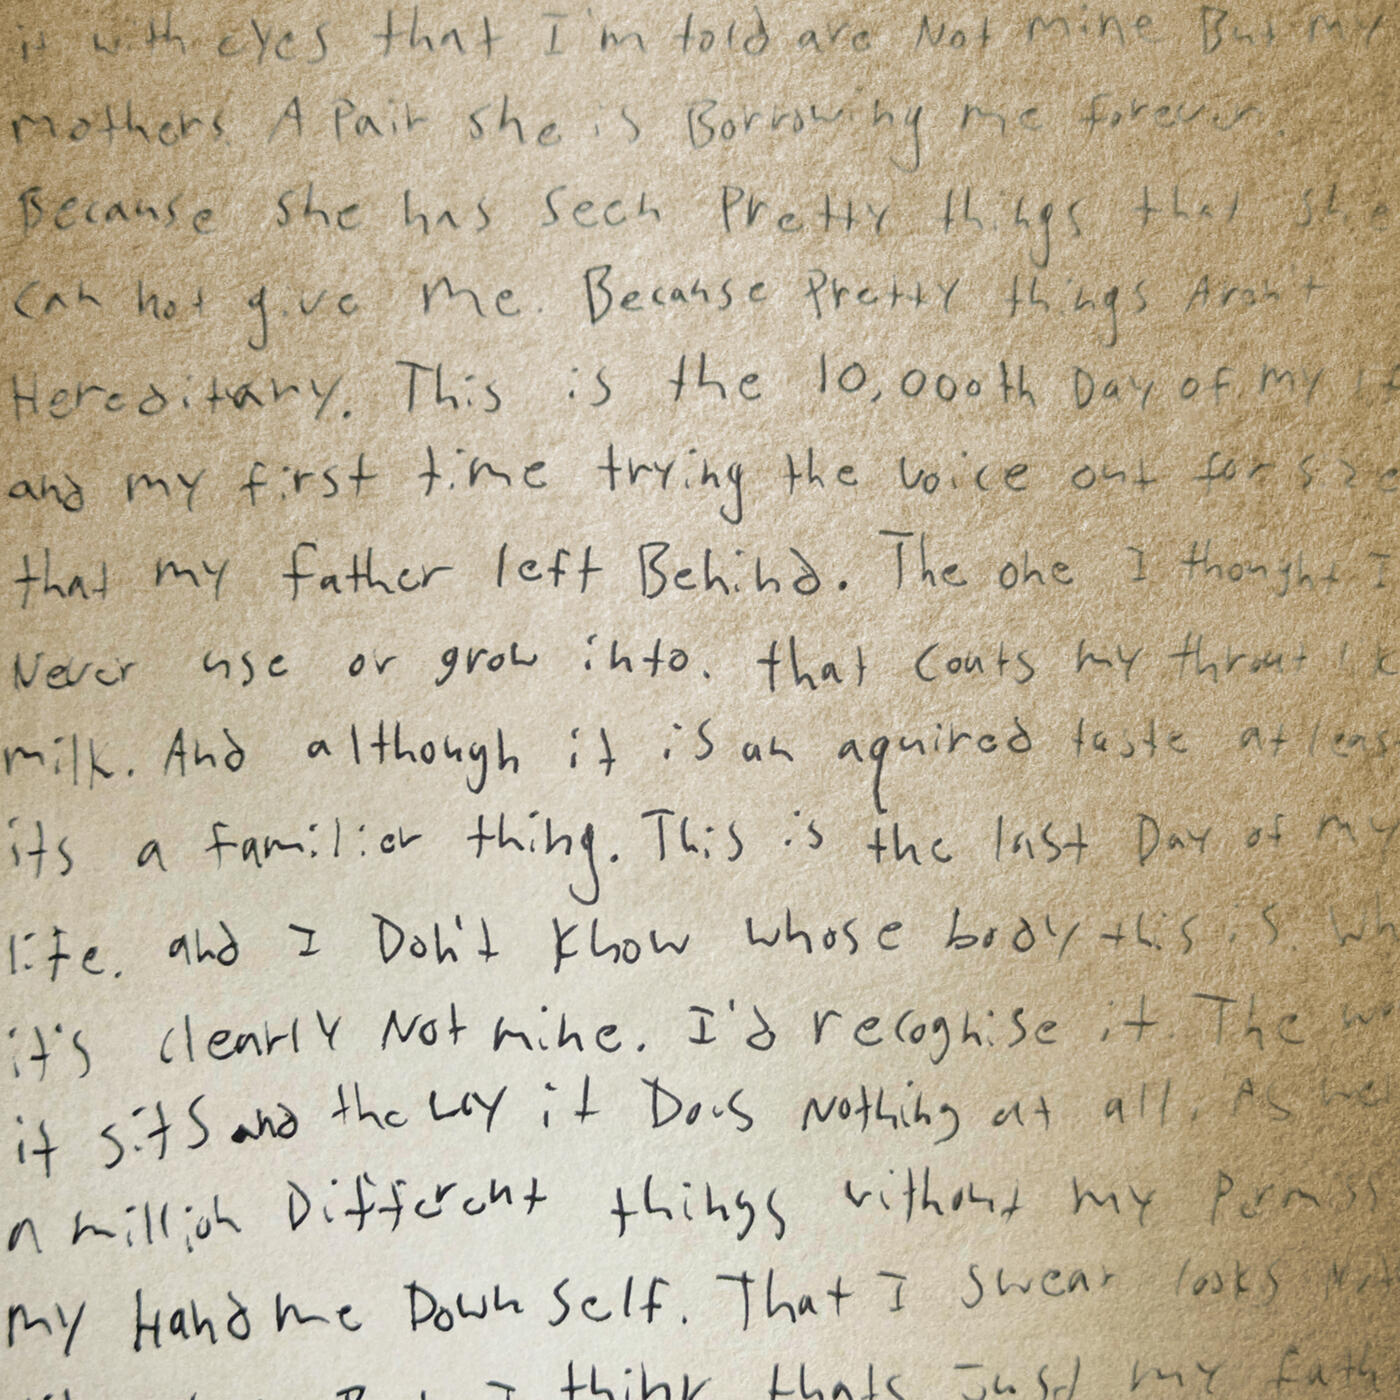 it with eyes that I'm told are Not mine But my
mothers. A Pair she is Borrowing me forever.
Because she has seen Pretty things that she
can not give me. Because Pretty things Aren't
Hereditary. This is the 10,000th Day of my
and my first time trying the voice out for size
that my father left Behind. The one I thought I
Never use or grow into. that coats my throat
milk. And although it is an aquired taste at
its a familier thing. This is the last Day of my
life. and I Don't know whose body this is.
it's clearly Not mine. I'd recognise it. The
it sits and the way it Does Nothing at all. As
a million Different things without my
my Hand me Down self. That I swear looks
I think thats Just my